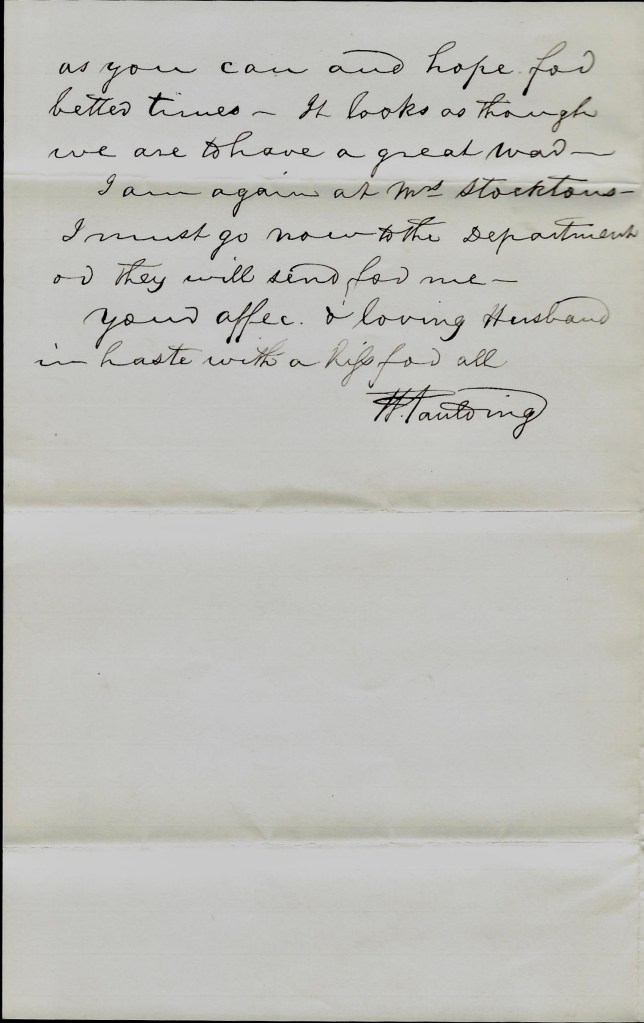 as you can and hope for
better times - It looks as though
we are to have a great war -
I am again at Mrs Stocktons -
I must go now to the Department
or they will send for me -
Your affec. & loving Husband
in haste with a kiss for all
H. Paulding